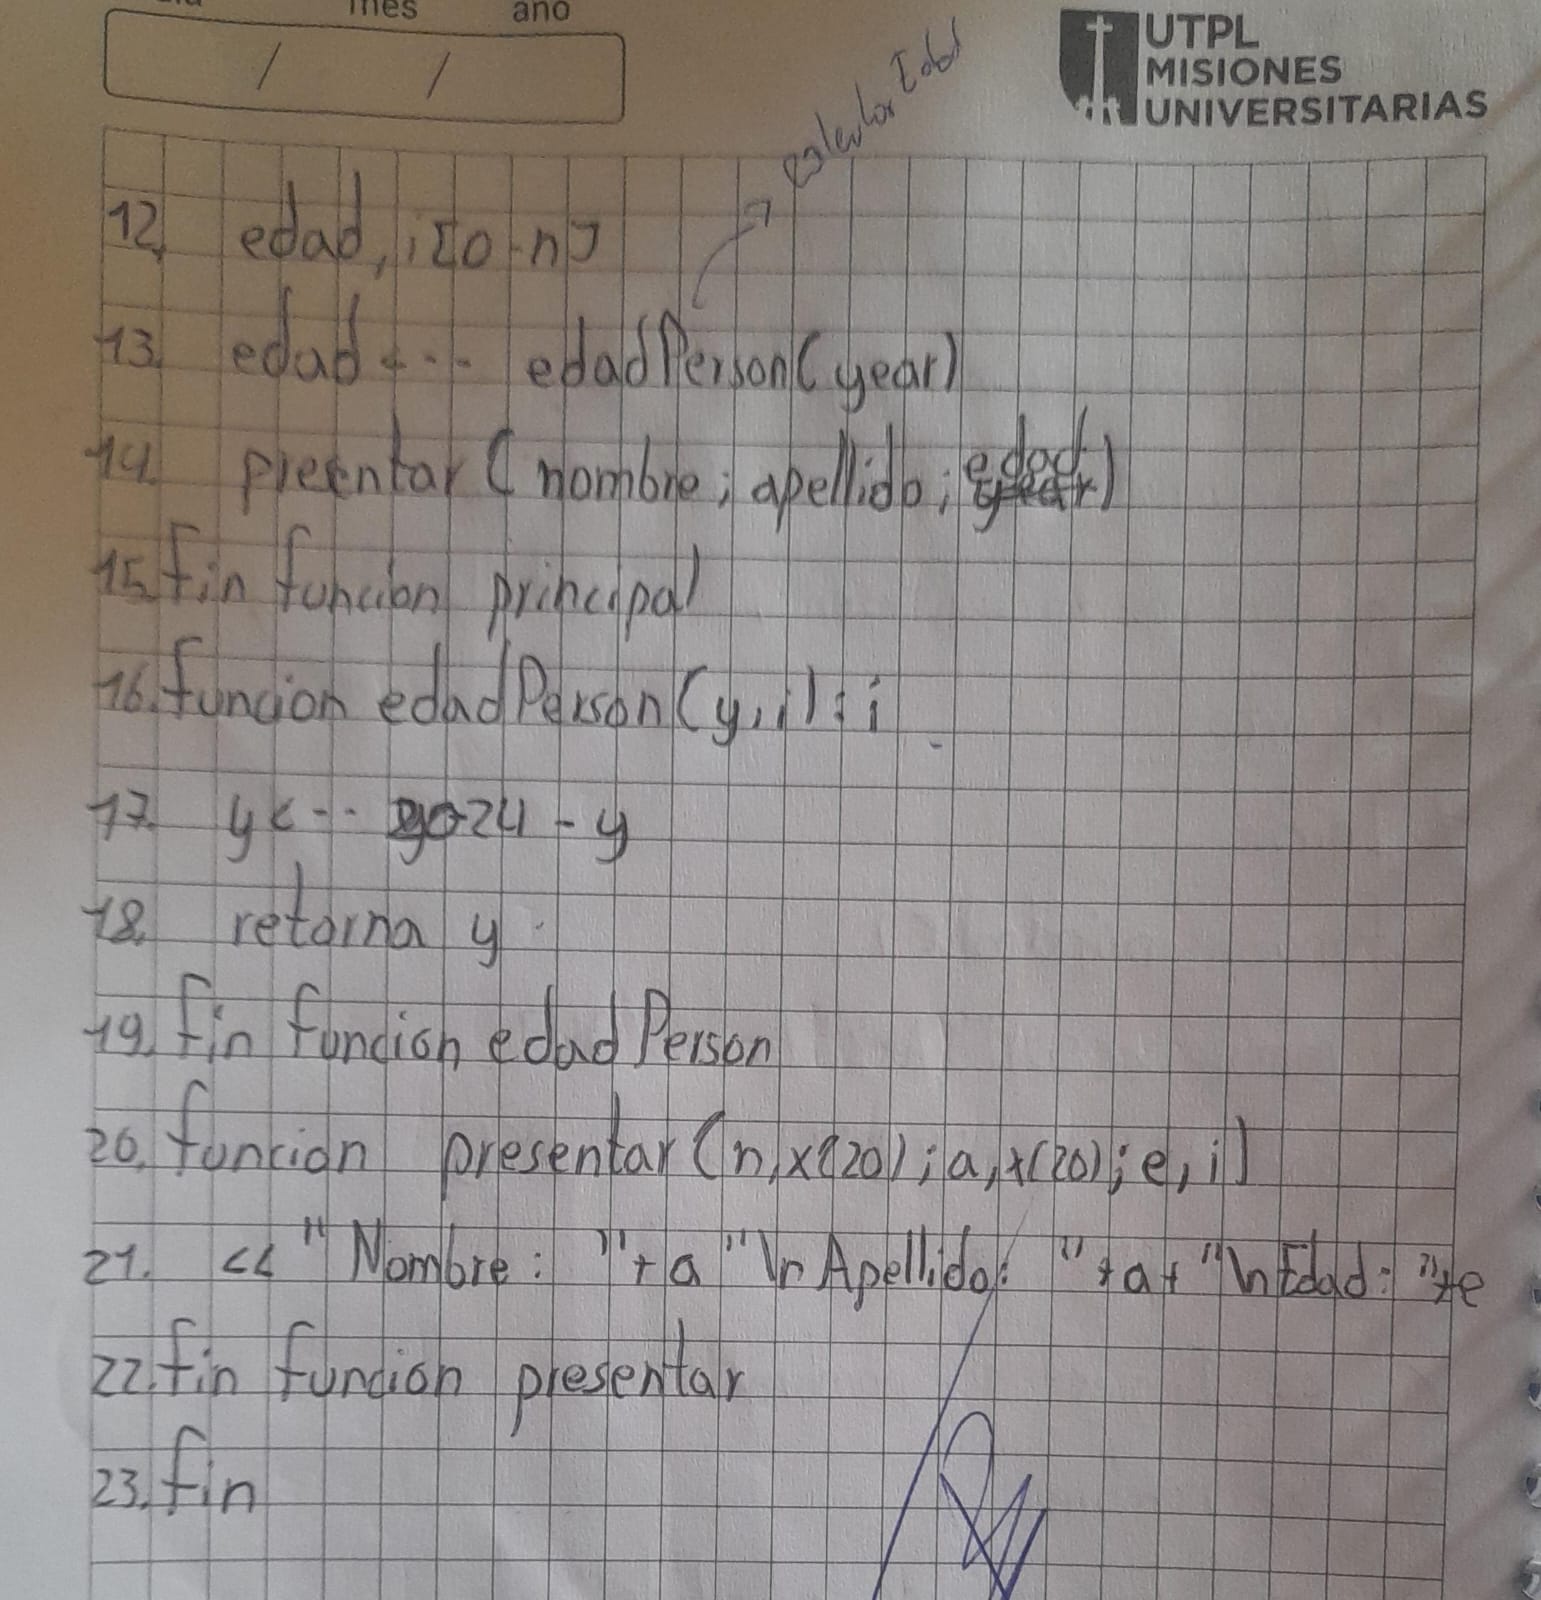 mes año
/ /
UTPL
MISIONES
UNIVERSITARIAS
calcular Edad
12. edad, i [0-n]
13. edad <-- edadPerson(year)
14. preentar (nombre; apellido; edad)
15. fin funcion principal
16. funcion edadPerson(y, i) : i
17. y <-- 2024 - y
18. retorna y
19. fin funcion edadPerson
20. funcion presentar (n, x(20); a, x(20); e, i)
21. << "Nombre: " + a "\n Apellido: " + a + "\n Edad: " + e
22. fin funcion presentar
23. fin